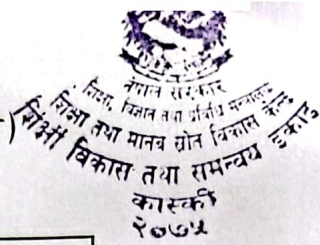 नेपाल सरकार
शिक्षा, विज्ञान तथा प्रविधि मन्त्रालय
शिक्षा तथा मानव स्रोत विकास केन्द्र
शिक्षा विकास तथा समन्वय इकाइ
कास्की
२०७५
)